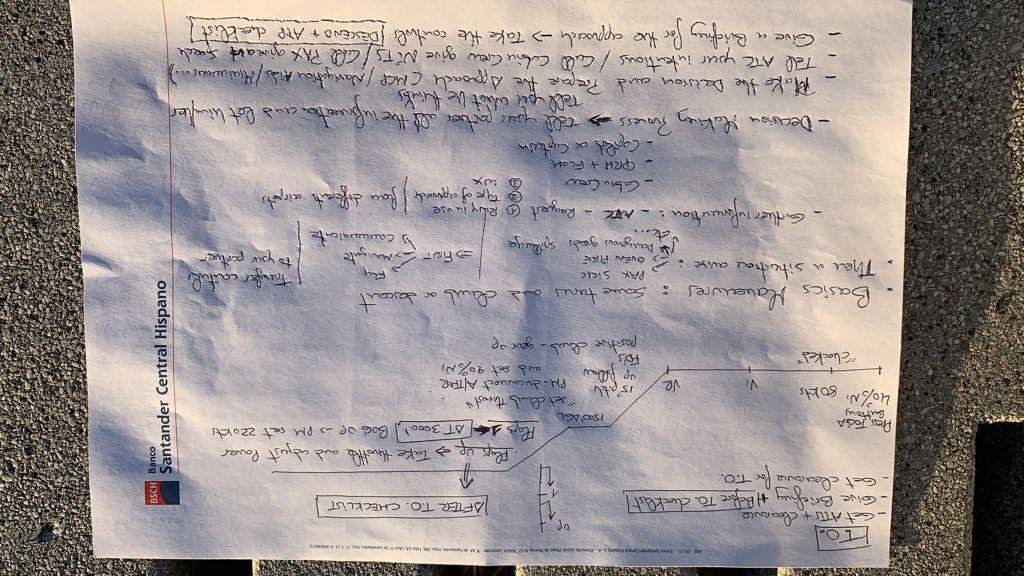 BSCH
Banco
Santander Central Hispano
T.O.
- Get ATIS + clearance
- Give Briefing + Before TO checklist
- Get clearance for T.O.
AFTER T.O. CHECKLIST
UP
Flaps UP → Take throttle and adjust Power
Flaps 1 AT 3000' Bug UP → PM set 220 kts
1500' AGL
"set climb thrust"
PM - disconnect A/THR
and set 90% N1
15° pitch
up follow
FDs
positive climb - gear up
Press TOGA
Button
40% N1
80 kts
V1
VR
"checked"
• Basics Maneuvres : some turns and climb or descent
• Then a situation arise :
PAX SICK
OVEN FIRE
Dangerous goods spillage
etc...
⇒ FIRST
Fly
Navigate
Communicate
Transfer controls
to your partner
- Gather information : - ATC - Request
① Rwy in use
② Type of approach
③ WX
from different airports
- Cabin Crew
- QRH + FCOM
- Copilot or Captain
- Decision Making Process → Tell your partner all the information and let him/her
tell you what he thinks
- Make the Decision and Prepare the Approach (MCP / Navigation Aids / Minimums...)
- Tell ATC your intentions / Call Cabin Crew give NITS / Call PAX give a speech
- Give a Briefing for the approach → Take the controls DESCEND + APP checklist